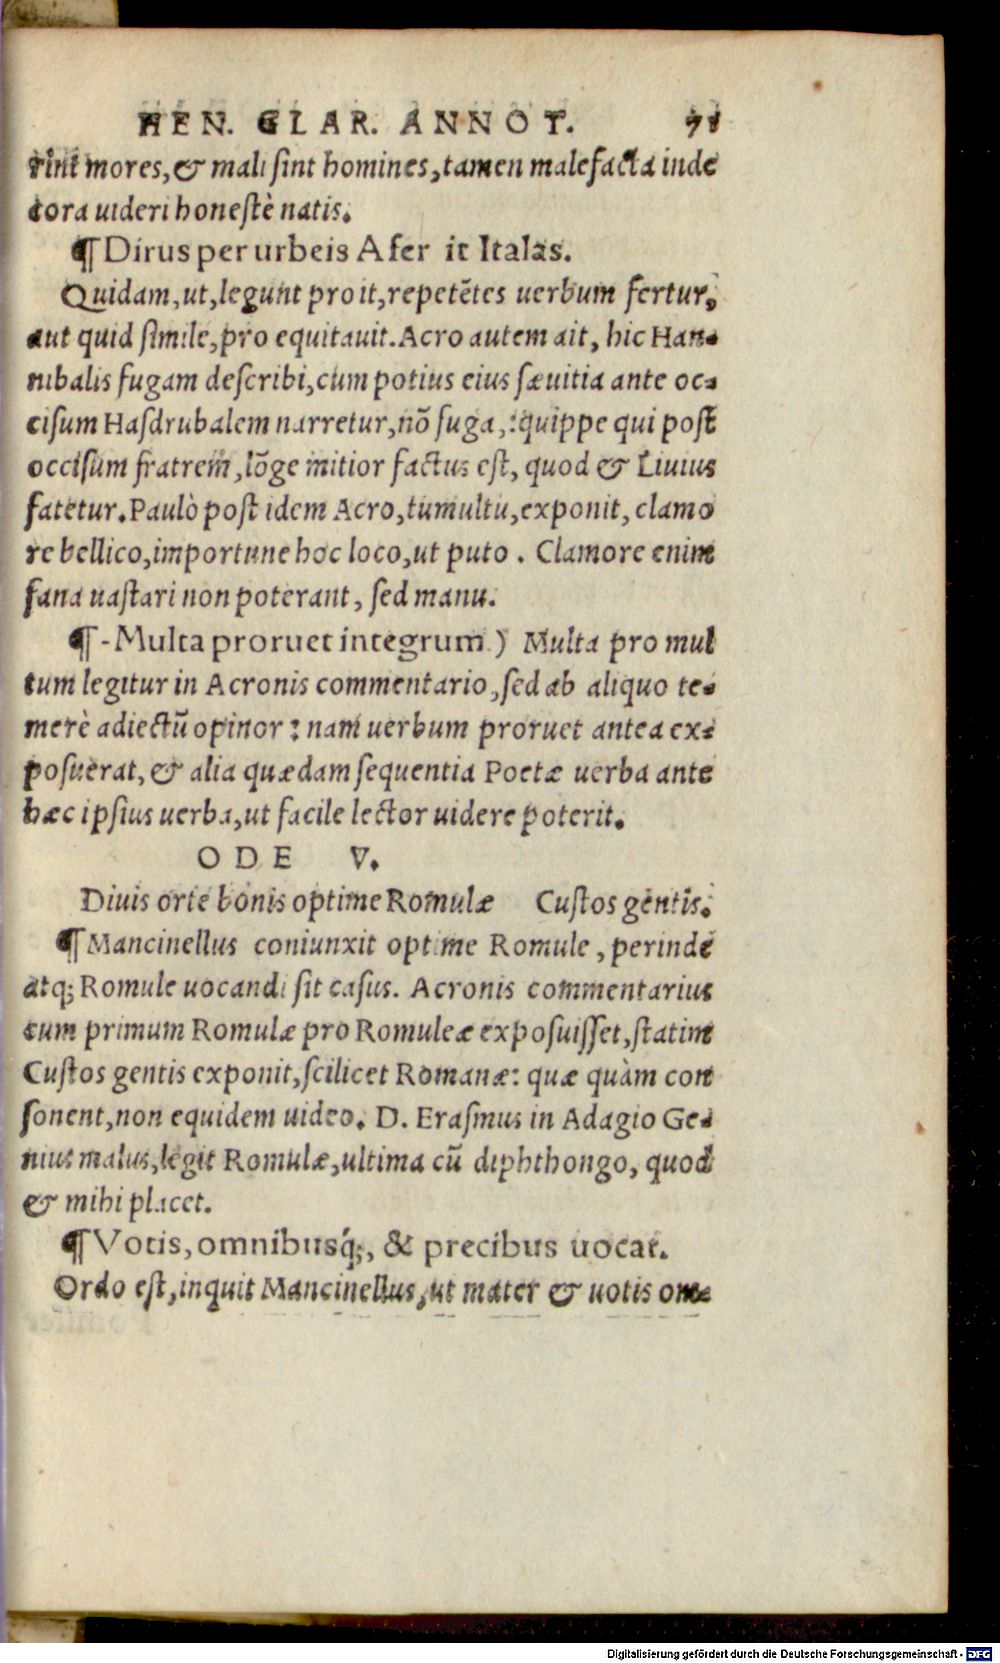 HEN. GLAR. ANNOT. 71
rint mores, & mali sint homines, tamen malefacta inde
cora uideri honestè natis.
¶ Dirus per urbeis Afer it Italas.
Quidam, ut, legunt pro it, repetẽtes uerbum fertur,
aut quid simile, pro equitauit. Acro autem ait, hic Han-
nibalis fugam describi, cum potius eius sæuitia ante oc-
cisum Hasdrubalem narretur, nõ fuga,: quippe qui post
occisum fratrem, lõge mitior factus est, quod & Liuius
fatetur. Paulò post idem Acro, tumultu, exponit, clamo
re bellico, importune hoc loco, ut puto . Clamore enim
fana uastari non poterant, sed manu.
¶ -Multa proruet integrum.) Multa pro mul
tum legitur in Acronis commentario, sed ab aliquo te-
merè adiectũ opinor : nam uerbum proruet antea ex-
posuerat, & alia quædam sequentia Poetæ uerba ante
hæc ipsius uerba, ut facile lector uidere poterit.
ODE V.
Diuis orte bonis optime Romulæ Custos gentis.
¶ Mancinellus coniunxit optime Romule, perinde
atq; Romule uocandi sit casus. Acronis commentarius
cum primum Romulæ pro Romuleæ exposuisset, statim
Custos gentis exponit, scilicet Romanæ: quæ quàm con
sonent, non equidem uideo. D. Erasmus in Adagio Ge-
nius malus, legit Romulæ, ultima cũ diphthongo, quod
& mihi placet.
¶ Votis, omnibusq́;, & precibus uocat.
Ordo est, inquit Mancinellus, ut mater & uotis om-
Digitalisierung gefördert durch die Deutsche Forschungsgemeinschaft - DFG